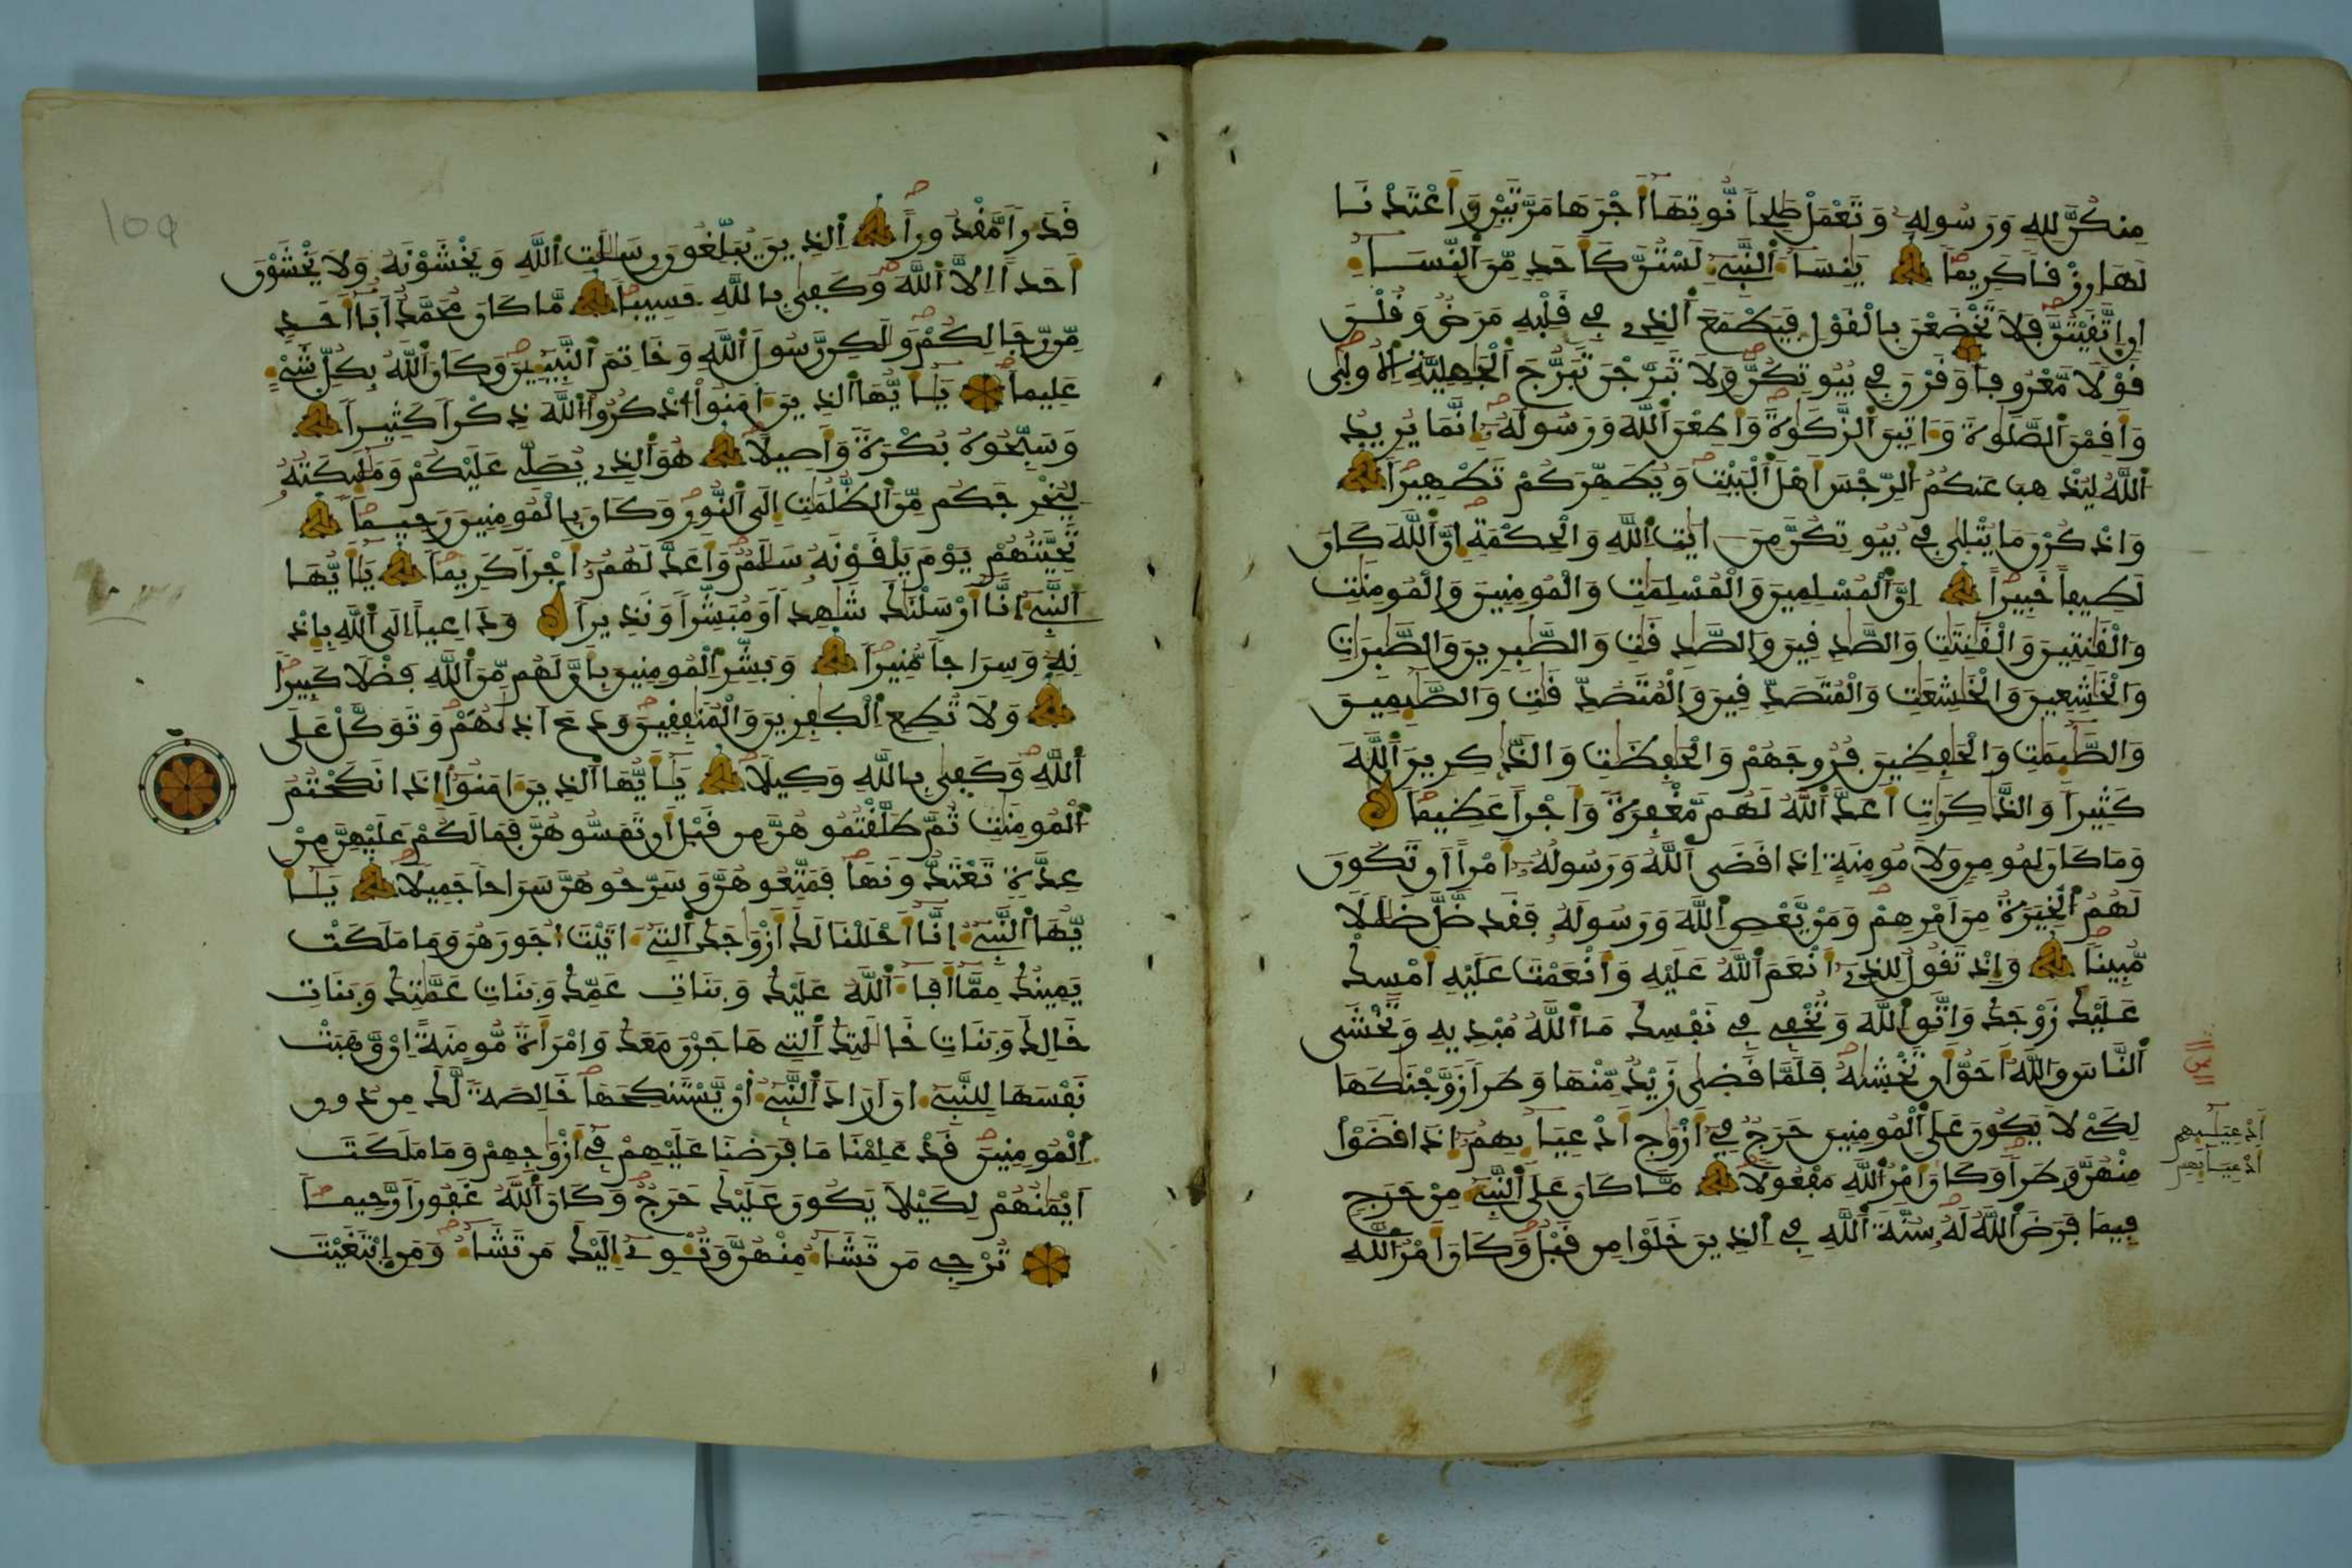 مِنكُنَّ لِلهِ وَرَسُولِهِ وَتَعْمَلْ صَٰلِحاً نُّوتِهَا أَجْرَهَا مَرَّتَيْنِ وَأَعْتَدْنَا
لَهَا رِزْقاً كَرِيماً يَٰنِسَاءَ اَلنَّبِيءِ لَسْتُنَّ كَأَحَدٍ مِّنَ اَلنِّسَاءِ
اِنِ اِتَّقَيْتُنَّ فَلَا تَخْضَعْنَ بِالْقَوْلِ فَيَطْمَعَ اَلذِے فِے قَلْبِهِ مَرَضٌ وَقُلْنَ
قَوْلًا مَّعْرُوفاً وَقَرْنَ فِے بُيُوتِكُنَّ وَلَا تَبَرَّجْنَ تَبَرُّجَ اَلْجَٰهِلِيَّةِ اِلُاولَىٰ
وَأَقِمْنَ اَلصَّلَوٰةَ وَءَاتِينَ اَلزَّكَوٰةَ وَأَطِعْنَ اَللَّهَ وَرَسُولَهُ إِنَّمَا يُرِيدُ
اَللَّهُ لِيُذْهِبَ عَنكُمُ اُلرِّجْسَ أَهْلَ اَلْبَيْتِ وَيُطَهِّرَكُمْ تَطْهِيراً
وَاذْكُرْنَ مَا يُتْلَىٰ فِے بُيُوتِكُنَّ مِنَ ءَايَٰتِ اِللَّهِ وَالْحِكْمَةِ إِنَّ اَللَّهَ كَانَ
لَطِيفاً خَبِيراً اِنَّ اَلْمُسْلِمِينَ وَالْمُسْلِمَٰتِ وَالْمُومِنِينَ وَالْمُومِنَٰتِ
وَالْقَٰنِتِينَ وَالْقَٰنِتَٰتِ وَالصَّٰدِقِينَ وَالصَّٰدِقَٰتِ وَالصَّٰبِرِينَ وَالصَّٰبِرَٰتِ
وَالْخَٰشِعِينَ وَالْخَٰشِعَٰتِ وَالْمُتَصَدِّقِينَ وَالْمُتَصَدِّقَٰتِ وَالصَّٰئِمِينَ
وَالصَّٰئِمَٰتِ وَالْحَٰفِظِينَ فُرُوجَهُمْ وَالْحَٰفِظَٰتِ وَالذَّٰكِرِينَ اَللَّهَ
كَثِيراً وَالذَّٰكِرَٰتِ أَعَدَّ اَللَّهُ لَهُم مَّغْفِرَةً وَأَجْراً عَظِيماً
وَمَا كَانَ لِمُومِنٍ وَلَا مُومِنَةٍ اِذَا قَضَى اَللَّهُ وَرَسُولُهُ أَمْراً أَن تَكُونَ
لَهُمُ اُلْخِيَرَةُ مِنَ اَمْرِهِمْ وَمَنْ يَّعْصِ اِللَّهَ وَرَسُولَهُ فَقَد ضَّلَّ ضَلَٰلًا
مُّبِيناً وَإِذْ تَقُولُ لِلذِے أَنْعَمَ اَللَّهُ عَلَيْهِ وَأَنْعَمْتَ عَلَيْهِ أَمْسِكْ
عَلَيْكَ زَوْجَكَ وَاتَّقِ اِللَّهَ وَتُخْفِے فِے نَفْسِكَ مَا اَللَّهُ مُبْدِيهِ وَتَخْشَى
اَلنَّاسَ وَاللَّهُ أَحَقُّ أَن تَخْشَىٰهُ فَلَمَّا قَضَىٰ زَيْدٌ مِّنْهَا وَطَراً زَوَّجْنَٰكَهَا
لِكَےْ لَا يَكُونَ عَلَى اَلْمُومِنِينَ حَرَجٌ فِے أَزْوَٰجِ أَدْعِيَائِهِمُ إِذَا قَضَوْاْ
مِنْهُنَّ وَطَراً وَكَانَ أَمْرُ اُللَّهِ مَفْعُولًا مَّا كَانَ عَلَى اَلنَّبِيءِ مِنْ حَرَجٍ
فِيمَا فَرَضَ اَللَّهُ لَهُ سُنَّةَ اَللَّهِ فِے اِلذِينَ خَلَوْا مِن قَبْلُ وَكَانَ أَمْرُ اُللَّهِ
ثمن
أَدْعِيَائِهِم
أَدْعِيَائِهِمْ
قَدَراً مَّقْدُوراً اِلذِينَ يُبَلِّغُونَ رِسَٰلَٰتِ اِللَّهِ وَيَخْشَوْنَهُ وَلَا يَخْشَوْنَ
أَحَداً اِلَّا اَللَّهَ وَكَفَىٰ بِاللَّهِ حَسِيباً مَّا كَانَ مُحَمَّدٌ أَبَا أَحَدٍ
مِّن رِّجَالِكُمْ وَلَٰكِن رَّسُولَ اَللَّهِ وَخَاتِمَ اَلنَّبِيـِٕينَ وَكَانَ اَللَّهُ بِكُلِّ شَےْءٍ
عَلِيماً يَٰأَيُّهَا اَلذِينَ ءَامَنُواْ اُذْكُرُواْ اُللَّهَ ذِكْراً كَثِيراً
وَسَبِّحُوهُ بُكْرَةً وَأَصِيلًا هُوَ اَلذِے يُصَلِّے عَلَيْكُمْ وَمَلَٰئِكَتُهُ
لِيُخْرِجَكُم مِّنَ اَلظُّلُمَٰتِ إِلَى اَلنُّورِ وَكَانَ بِالْمُومِنِينَ رَحِيماً
تَحِيَّتُهُمْ يَوْمَ يَلْقَوْنَهُ سَلَٰمٌ وَأَعَدَّ لَهُمُ أَجْراً كَرِيماً يَٰأَيُّهَا
اَلنَّبِيءُ اِنَّا أَرْسَلْنَٰكَ شَٰهِداً وَمُبَشِّراً وَنَذِيراً وَدَاعِياً اِلَى اَللَّهِ بِإِذْ
نِهِ وَسِرَاجاً مُّنِيراً وَبَشِّرِ اِلْمُومِنِينَ بِأَنَّ لَهُم مِّنَ اَللَّهِ فَضْلًا كَبِيراً
وَلَا تُطِعِ اِلْكَٰفِرِينَ وَالْمُنَٰفِقِينَ وَدَعَ اَذَىٰهُمْ وَتَوَكَّلْ عَلَى
اَللَّهِ وَكَفَىٰ بِاللَّهِ وَكِيلًا يَٰأَيُّهَا اَلذِينَ ءَامَنُواْ إِذَا نَكَحْتُمُ
اُلْمُومِنَٰتِ ثُمَّ طَلَّقْتُمُوهُنَّ مِن قَبْلِ أَن تَمَسُّوهُنَّ فَمَا لَكُمْ عَلَيْهِنَّ مِنْ
عِدَّةٍ تَعْتَدُّونَهَا فَمَتِّعُوهُنَّ وَسَرِّحُوهُنَّ سَرَاحاً جَمِيلًا يَٰأَ
يُّهَا اَلنَّبِيءُ اِنَّا أَحْلَلْنَا لَكَ أَزْوَٰجَكَ اَلَٰتِے ءَاتَيْتَ أُجُورَهُنَّ وَمَا مَلَكَتْ
يَمِينُكَ مِمَّا أَفَاءَ اَللَّهُ عَلَيْكَ وَبَنَاتِ عَمِّكَ وَبَنَاتِ عَمَّٰتِكَ وَبَنَاتِ
خَالِكَ وَبَنَاتِ خَٰلَٰتِكَ اَلَٰتِے هَاجَرْنَ مَعَكَ وَامْرَأَةً مُّومِنَةً اِنْ وَّهَبَتْ
نَفْسَهَا لِلنَّبِيءِ انَ اَرَادَ اَلنَّبِيءُ أَنْ يَّسْتَنكِحَهَا خَالِصَةً لَّكَ مِن دُونِ
اِلْمُومِنِينَ قَدْ عَلِمْنَا مَا فَرَضْنَا عَلَيْهِمْ فِے أَزْوَٰجِهِمْ وَمَا مَلَكَتَ
اَيْمَٰنُهُمْ لِكَيْلَا يَكُونَ عَلَيْكَ حَرَجٌ وَكَانَ اَللَّهُ غَفُوراً رَّحِيماً
تُرْجِے مَن تَشَاءُ مِنْهُنَّ وَتُـْٔوِے إِلَيْكَ مَن تَشَاءُ وَمَنِ اِبْتَغَيْتَ
109